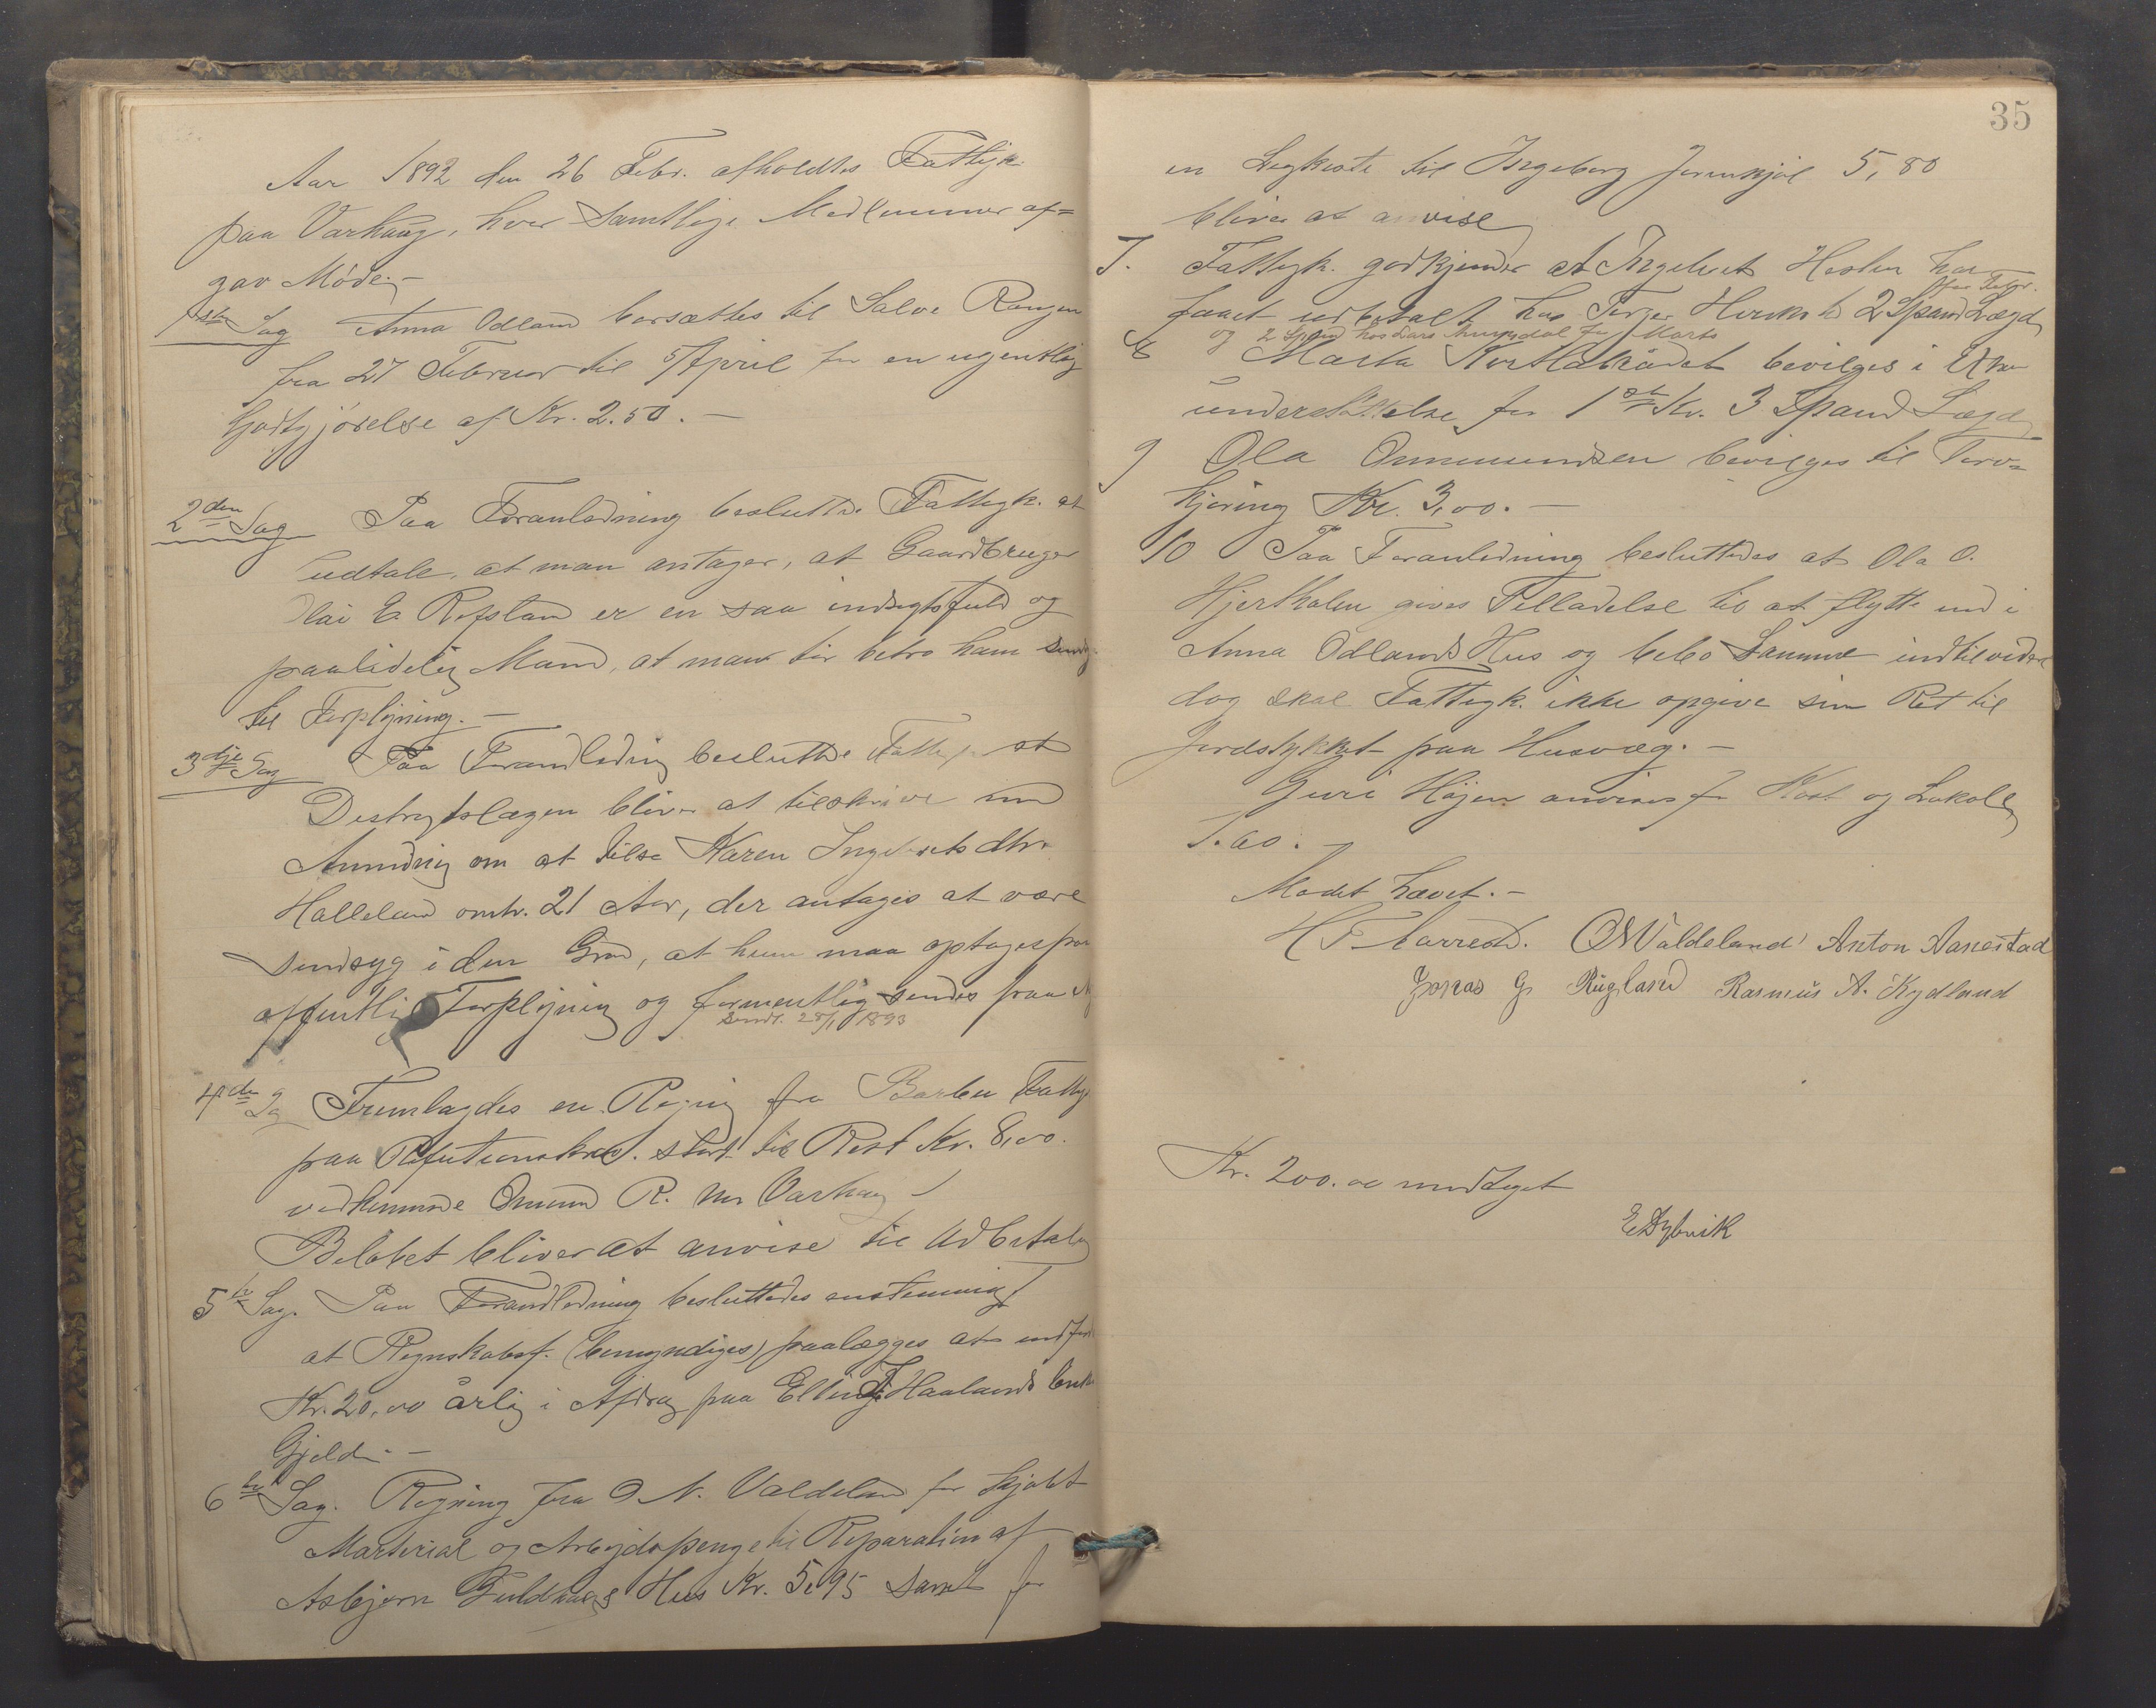 Aar 1892 den 26 Febr. afholdtes Fattigk.
paa Varhaug, hvor Samtlige Medlemmer af=
gav Møde.-
1ste Sag Anna Odland bersættes til Salve Rangen
fra 27 Februar til 5 April for en ugentlig
Godtgjørelse af Kr. 2.50.-
2den Sag Paa Foranledning besluttede Fattigk. at
udtale, at man antager, at Gaardbruger
Olai E. Refsland er en saa indsigtsfuld og
paalidelig Mand, at man tør betro ham
til Forplejning.-
3dje Sag Paa Forandledning besluttede Fattigk. at
Destrigtslægen bliver at tilskrive med
Anmodning om at tilse Karen Ingebretsdtr.
Halleland omtr. 21 Aar, der antages at være
sindsyg i den Grad, at hun maa optages paa
offentlig Forplejning og formentlig sendes paa
Sendt. 28/1 1893
4de Sag Fremlagdes en Regning fra Barbu Fattig
paa Refutionskrav. stort til Rest Kr. 8,00.
vedkommende Omund R. Varhaug
Beløbet bliver at anvise til Udbetaling
5te Sag. Paa Forandledning besluttedes enstemmigt
at Regnskabsf. (bemyndiges) paalægges at
Kr. 20,00 årlig i Afdrag paa Elling T. Haalands
Gjeld.-
6te Sag. Regning fra O N. Valdeland for kjøbt
Marterial og Arbejdspenge til Reparation af
Asbjørn Fuldhaugs Hus Kr. 5,95 samt for
35
en Ligkiste til Ingeborg 5,80
bliver at anvise
7. Fattigk. godkjender at Ingebret Hosten har
for Febr.
faaet udbetalt hos Torger 2 Spand Lægd
og 2 Spand hos Lars for Marts
8 Marta bevilges i
understøttelse for 1ste Kv. 3 Spand Lægd
9 Ola Ommundsen bevilges til Torv=
kjøring Kr. 3,00.-
10 Paa Foranledning besluttedes at Ola O.
gives Tilladelse til at flytte ind i
Anna Odlands Hus og bebo Samme indtilvidre
dog skal Fattigk. ikke opgive sin Ret til
Jordstykket paa Husvæg.-
Guri Højen anvises for Kost og Lokale
Mødet hævet.-
H T. Aarrestad. O N Valdeland Anton Aanestad
Jonas G. Rugland Rasmus A. Kydland
Kr. 200.00 modtaget
E Dybvik